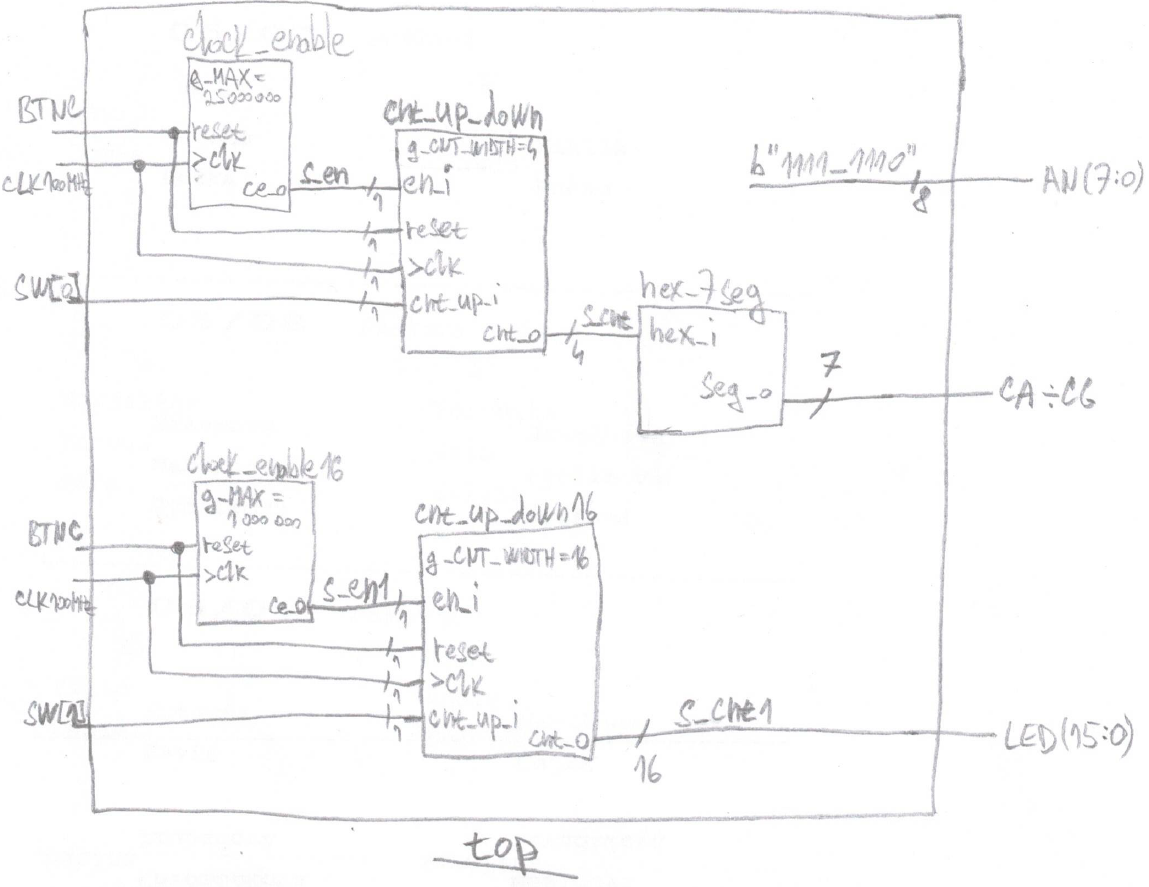 clock_enable
g_MAX=
25000000
BTNC
reset
>clk
CLK100MHz
ce_o
s_en
1
cnt_up_down
g_CNT_WIDTH=4
en_i
reset
1
>clk
1
SW[0]
cnt_up_i
1
cnt_o
4
s_cnt
b"1111_1110"
8
AN(7:0)
hex_7seg
hex_i
seg_o
7
CA÷CG
clock_enable16
g_MAX=
1000000
BTNC
reset
>clk
CLK100MHz
ce_o
s_en1
1
cnt_up_down16
g_CNT_WIDTH=16
en_i
reset
1
>clk
1
SW[1]
cnt_up_i
1
cnt_o
16
s_cnt1
LED(15:0)
top